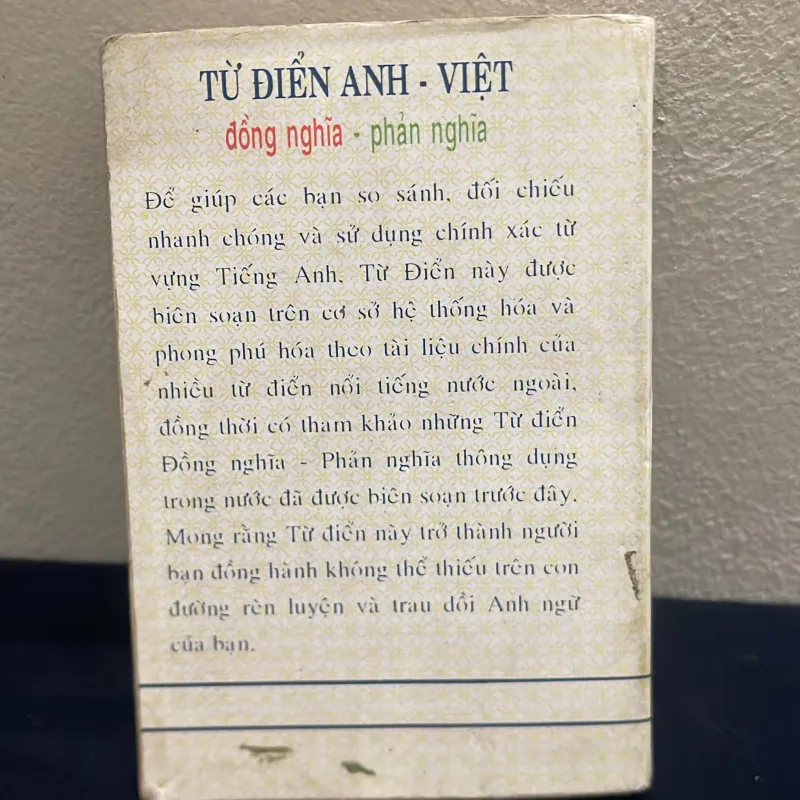 TỪ ĐIỂN ANH - VIỆT
đồng nghĩa - phản nghĩa
Để giúp các bạn so sánh, đối chiếu
nhanh chóng và sử dụng chính xác từ
vựng Tiếng Anh, Từ Điển này được
biên soạn trên cơ sở hệ thống hóa và
phong phú hóa theo tài liệu chính của
nhiều từ điển nổi tiếng nước ngoài,
đồng thời có tham khảo những Từ điển
Đồng nghĩa - Phản nghĩa thông dụng
trong nước đã được biên soạn trước đây.
Mong rằng Từ điển này trở thành người
bạn đồng hành không thể thiếu trên con
đường rèn luyện và trau dồi Anh ngữ
của bạn.